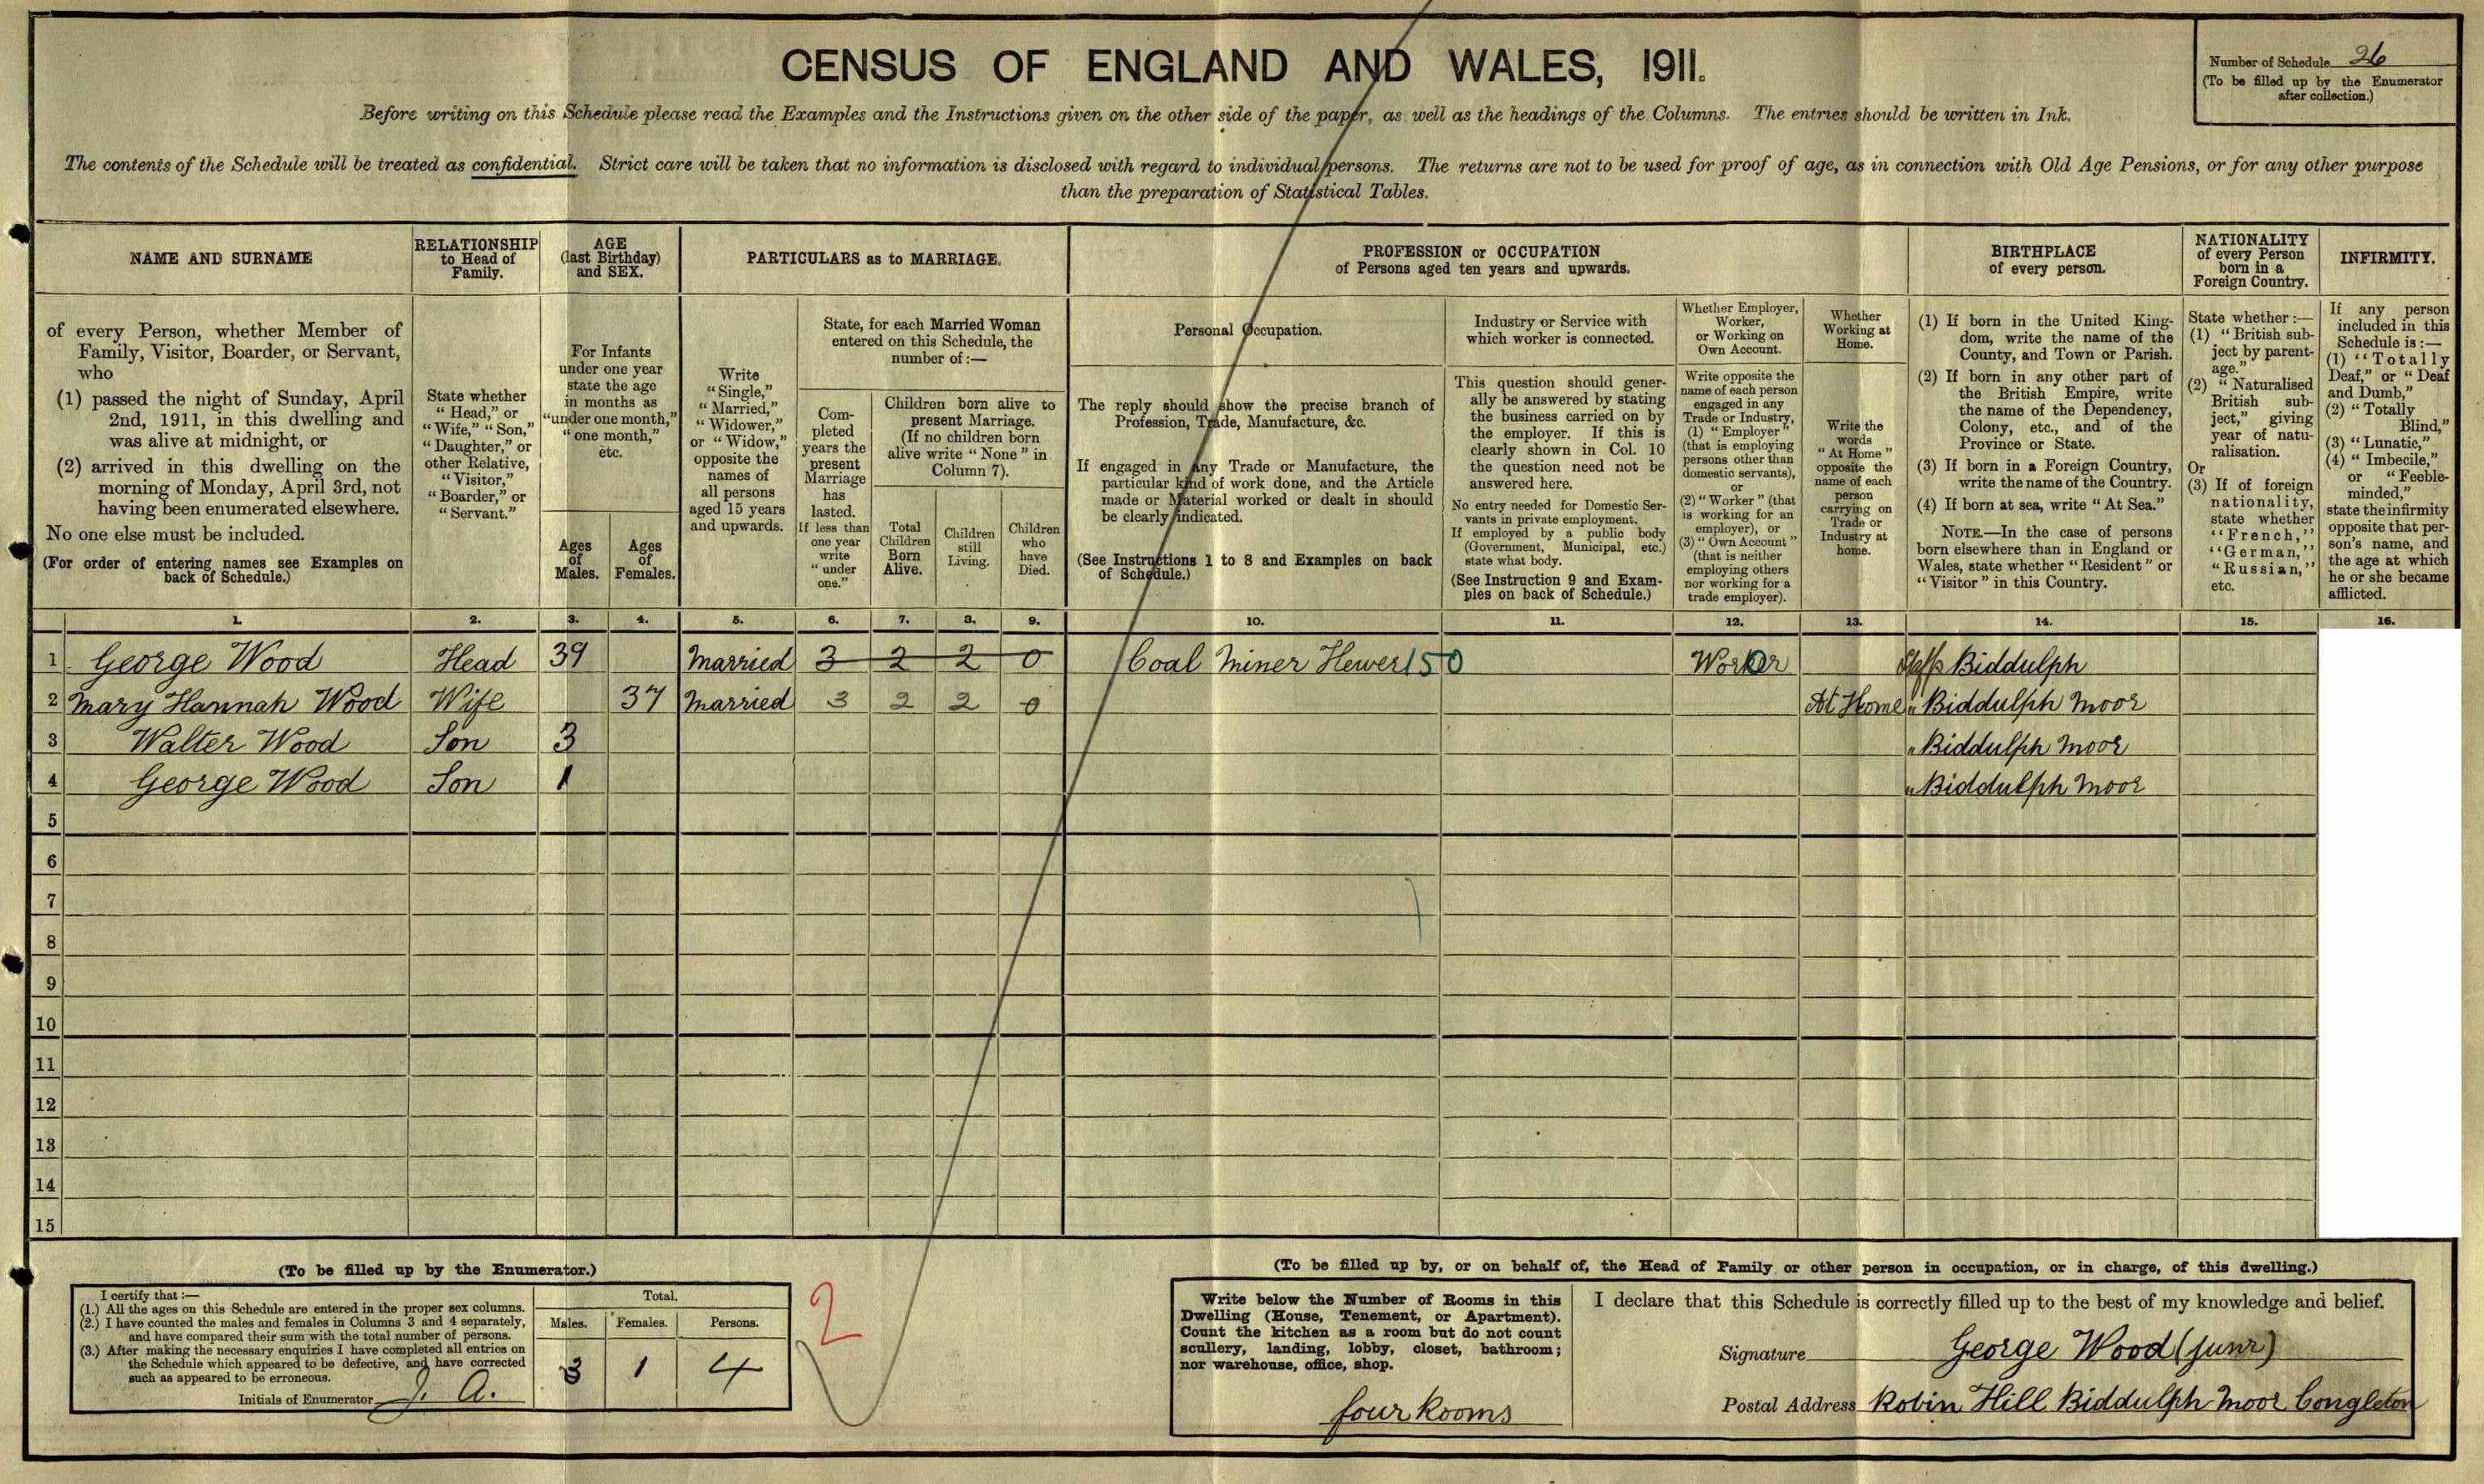 CENSUS OF ENGLAND AND WALES, 1911.
Number of Schedule 26
(To be filled up by the Enumerator
after collection.)
Before writing on this Schedule please read the Examples and the Instructions given on the other side of the paper, as well as the headings of the Columns. The entries should be written in Ink.
The contents of the Schedule will be treated as confidential. Strict care will be taken that no information is disclosed with regard to individual persons. The returns are not to be used for proof of age, as in connection with Old Age Pensions, or for any other purpose
than the preparation of Statistical Tables.
NAME AND SURNAME
of every Person, whether Member of
Family, Visitor, Boarder, or Servant,
who
(1) passed the night of Sunday, April
2nd, 1911, in this dwelling and
was alive at midnight, or
(2) arrived in this dwelling on the
morning of Monday, April 3rd, not
having been enumerated elsewhere.
No one else must be included.
(For order of entering names see Examples on
back of Schedule.)
RELATIONSHIP
to Head of
Family.
State whether
"Head," or
"Wife," "Son,"
"Daughter," or
other Relative,
"Visitor,"
"Boarder," or
"Servant."
AGE
(last Birthday)
and SEX.
For Infants
under one year
state the age
in months as
"under one month,"
"one month,"
etc.
Ages
of
Males.
Ages
of
Females.
PARTICULARS as to MARRIAGE.
Write
"Single,"
"Married,"
"Widower,"
or "Widow,"
opposite the
names of
all persons
aged 15 years
and upwards.
State, for each Married Woman
entered on this Schedule, the
number of:—
Com-
pleted
years the
present
Marriage
has
lasted.
If less than
one year
write
"under
one."
Children born alive to
present Marriage.
(If no children born
alive write "None" in
Column 7).
Total
Children
Born
Alive.
Children
still
Living.
Children
who
have
Died.
PROFESSION or OCCUPATION
of Persons aged ten years and upwards.
Personal Occupation.
The reply should show the precise branch of
Profession, Trade, Manufacture, &c.
If engaged in any Trade or Manufacture, the
particular kind of work done, and the Article
made or Material worked or dealt in should
be clearly indicated.
(See Instructions 1 to 8 and Examples on back
of Schedule.)
Industry or Service with
which worker is connected.
This question should gener-
ally be answered by stating
the business carried on by
the employer. If this is
clearly shown in Col. 10
the question need not be
answered here.
No entry needed for Domestic Ser-
vants in private employment.
If employed by a public body
(Government, Municipal, etc.)
state what body.
(See Instruction 9 and Exam-
ples on back of Schedule.)
Whether Employer,
Worker,
or Working on
Own Account.
Write opposite the
name of each person
engaged in any
Trade or Industry,
(1) "Employer"
(that is employing
persons other than
domestic servants),
or
(2) "Worker" (that
is working for an
employer), or
(3) "Own Account"
(that is neither
employing others
nor working for a
trade employer).
Whether
Working at
Home.
Write the
words
"At Home"
opposite the
name of each
person
carrying on
Trade or
Industry at
home.
BIRTHPLACE
of every person.
(1) If born in the United King-
dom, write the name of the
County, and Town or Parish.
(2) If born in any other part of
the British Empire, write
the name of the Dependency,
Colony, etc., and of the
Province or State.
(3) If born in a Foreign Country,
write the name of the Country.
(4) If born at sea, write "At Sea."
NOTE.—In the case of persons
born elsewhere than in England or
Wales, state whether "Resident" or
"Visitor" in this Country.
NATIONALITY
of every Person
born in a
Foreign Country.
State whether:—
(1) "British sub-
ject by parent-
age."
(2) "Naturalised
British sub-
ject," giving
year of natu-
ralisation.
Or
(3) If of foreign
nationality,
state whether
"French,"
"German,"
"Russian,"
etc.
INFIRMITY.
If any person
included in this
Schedule is:—
(1) "Totally
Deaf," or "Deaf
and Dumb,"
(2) "Totally
Blind,"
(3) "Lunatic,"
(4) "Imbecile,"
or "Feeble-
minded,"
state the infirmity
opposite that per-
son's name, and
the age at which
he or she became
afflicted.
1. 2. 3. 4. 5. 6. 7. 8. 9. 10. 11. 12. 13. 14. 15. 16.
1 George Wood Head 39 Married 3 2 2 0 Coal Miner Hewer 150 Worker Staffs Biddulph
2 Mary Hannah Wood Wife 37 Married 3 2 2 0 At Home " Biddulph Moor
3 Walter Wood Son 3 " Biddulph Moor
4 George Wood Son 1 " Biddulph Moor
5
6
7
8
9
10
11
12
13
14
15
(To be filled up by the Enumerator.)
I certify that:—
(1.) All the ages on this Schedule are entered in the proper sex columns.
(2.) I have counted the males and females in Columns 3 and 4 separately,
and have compared their sum with the total number of persons.
(3.) After making the necessary enquiries I have completed all entries on
the Schedule which appeared to be defective, and have corrected
such as appeared to be erroneous.
Initials of Enumerator J. A.
Total.
Males. Females. Persons.
3 1 4
2
(To be filled up by, or on behalf of, the Head of Family or other person in occupation, or in charge, of this dwelling.)
Write below the Number of Rooms in this
Dwelling (House, Tenement, or Apartment).
Count the kitchen as a room but do not count
scullery, landing, lobby, closet, bathroom;
nor warehouse, office, shop.
four Rooms
I declare that this Schedule is correctly filled up to the best of my knowledge and belief.
Signature George Wood (junr)
Postal Address Robin Hill Biddulph Moor Congleton